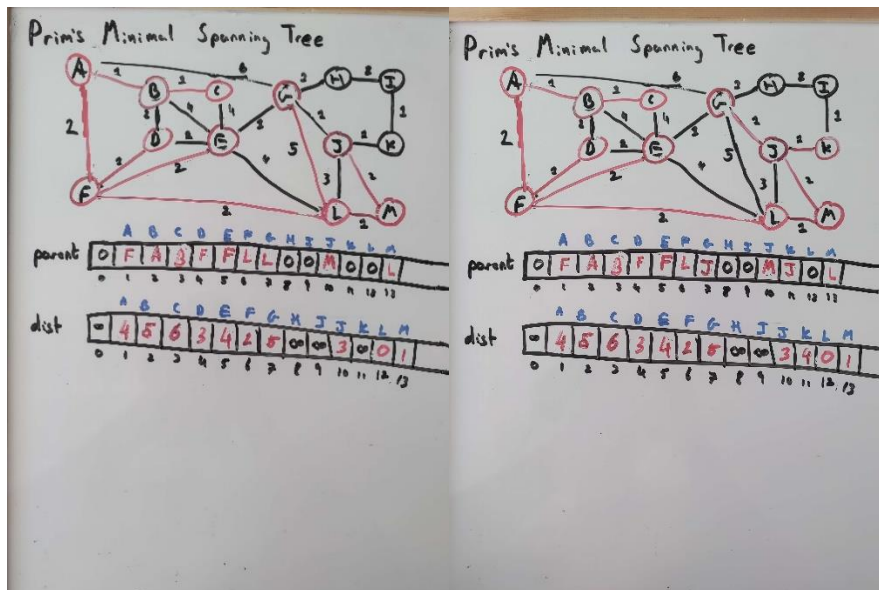 Prim's Minimal Spanning Tree
A 6 H I
B C G
2 4 4
D E 5 J K
2 4 3
F 2 L M
A B C D E F G H I J K L M
parent 0 F A B F F L L 0 0 M 0 0 L
0 1 2 3 4 5 6 7 8 9 10 11 12 13
A B C D E F G H I J K L M
dist ∞ 4 5 6 3 4 2 5 ∞ ∞ 3 ∞ 0 1
0 1 2 3 4 5 6 7 8 9 10 11 12 13
Prim's Minimal Spanning Tree
A 6 H I
B C G
2 4 4
D E 5 J K
2 4 3
F 2 L M
A B C D E F G H I J K L M
parent 0 F A B F F L J 0 0 M J 0 L
0 1 2 3 4 5 6 7 8 9 10 11 12 13
A B C D E F G H I J K L M
dist ∞ 4 5 6 3 4 2 5 ∞ ∞ 3 4 0 1
0 1 2 3 4 5 6 7 8 9 10 11 12 13